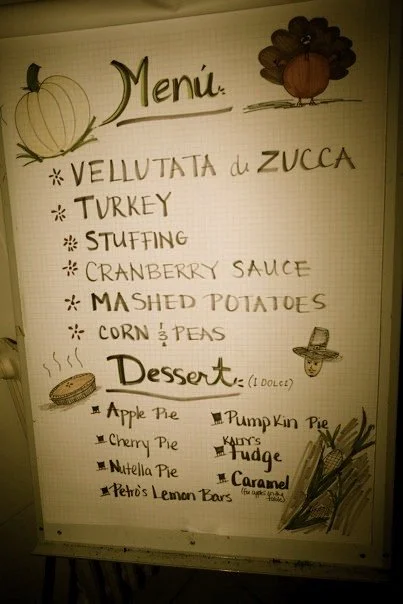 Menú
VELLUTATA di ZUCCA
TURKEY
STUFFING
CRANBERRY SAUCE
MASHED POTATOES
CORN & PEAS
Dessert: (I DOLCI)
Apple Pie
Cherry Pie
Nutella Pie
Petro's Lemon Bars
Pumpkin Pie
KATY'S
fudge
Caramel
(for apples on the
table)